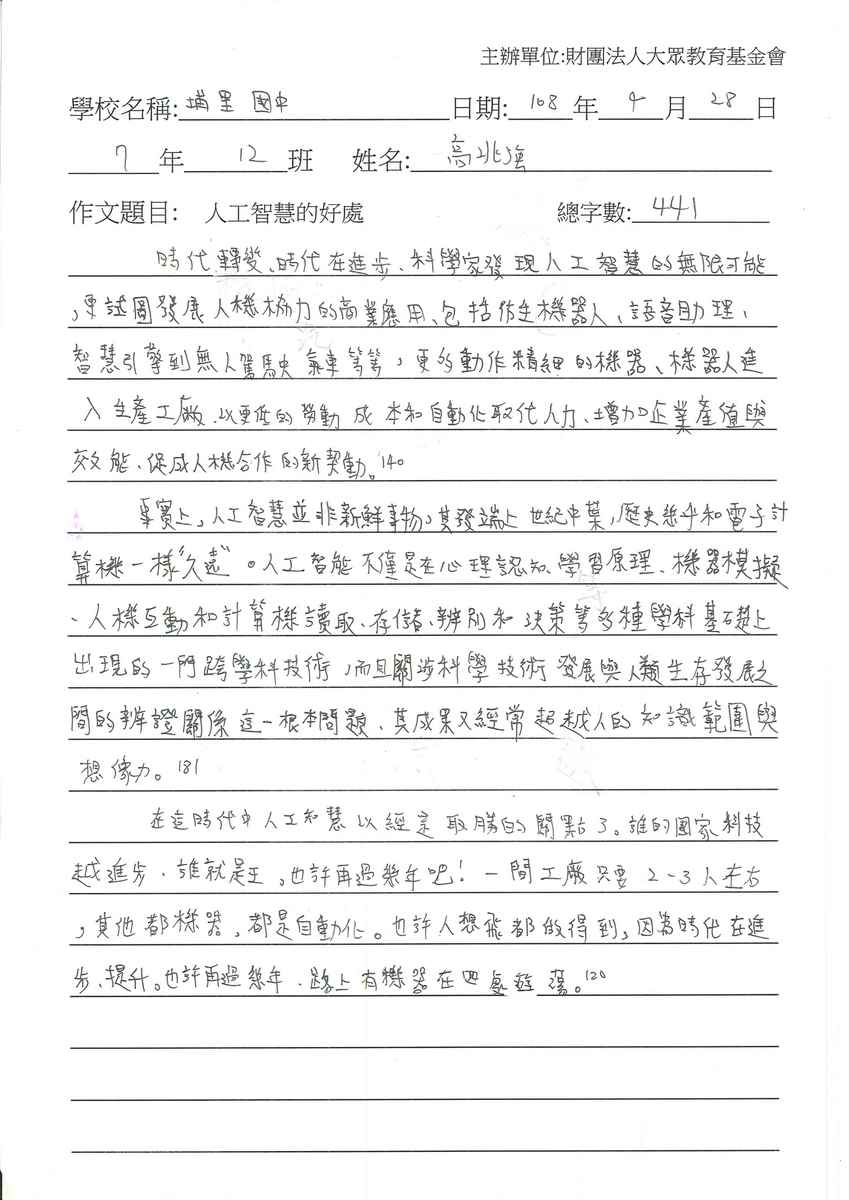 主辦單位:財團法人大眾教育基金會
學校名稱:埔里國中 日期:108年9月28日
7年12班 姓名:高兆強
作文題目: 人工智慧的好處 總字數:441
時代轉變、時代在進步、科學家發現人工智慧的無限可能
,更試圖發展人機協力的商業應用、包括仿生機器人、語音助理、
智慧引擎到無人駕駛氣車等等,更多動作精細的機器、機器人進
入生產工廠、以更低的勞動成本和自動化取代人力、增加企業產值與
效能、促成人機合作的新契動。140
事實上,人工智慧並非新鮮事物,其發端上世紀中葉,歷史幾乎和電子計
算機一樣"久遠"。人工智能不僅是在心理認知、學習原理、機器模擬
、人機互動和計算機讀取、存儲、辨別和決策等多種學科基礎上
出現的一門跨學科技術,而且關涉科學技術發展與人類生存發展之
間的辨證關係這一根本問題、其成果又經常超越人的知識範圍與
想像力。181
在這時代中人工知慧以經是取勝的關點了。誰的國家科技
越進步、誰就是王,也許再過幾年吧!一間工廠只要2-3人左右
,其他都機器,都是自動化。也許人想飛都做得到,因為時代在進
步、提升。也許再過幾年、路上有機器在四處遊蕩。120